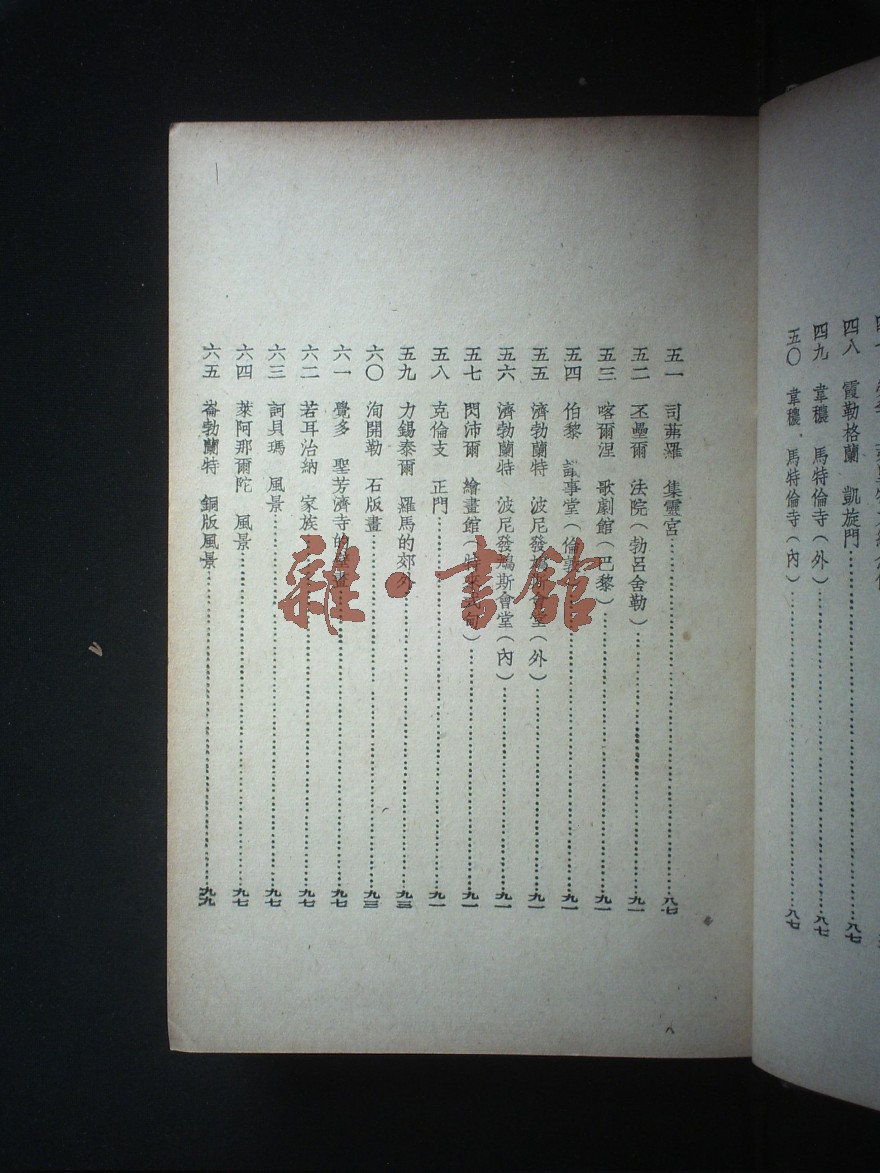 四八 霞勒格蘭 凱旋門……八七
四九 韋穠 馬特倫寺（外）……八七
五〇 韋穠 馬特倫寺（內）……八七
五一 司茀羅 集靈宮……八七
五二 丕壘爾 法院（勃呂舍勒）……九一
五三 喀爾涅 歌劇館（巴黎）……九一
五四 伯黎 議事堂（倫敦）……九一
五五 濟勃蘭特 波尼發鳩斯會堂（外）……九一
五六 濟勃蘭特 波尼發鳩斯會堂（內）……九一
五七 閃沛爾 繪畫館……九一
五八 克倫支 正門……九一
五九 力錫泰爾 羅馬的郊外……九三
六〇 洵開勒 石版畫……九三
六一 覺多 聖芳濟寺的壁畫……九七
六二 若耳治納 家族……九七
六三 訶貝瑪 風景……九七
六四 萊阿那爾陀 風景……九七
六五 崙勃蘭特 銅版風景……九九
八
雜·書館